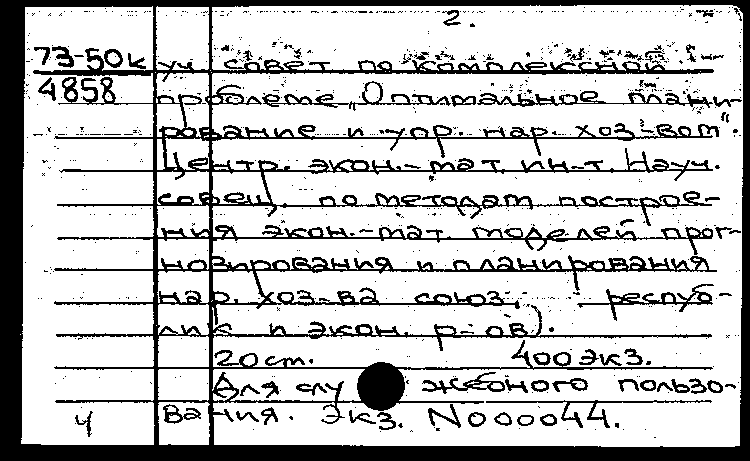 2.
73-50к уч совет по комплексной
4858 проблеме „Оптимальное плани-
рование и упр. нар. хоз-вом".
Центр. экон.-мат. ин-т. Науч.
совещ. по методам построе-
ния экон.-мат. моделей прог-
нозирования и планирования
нар. хоз-ва союз, респуб-
лик и экон. р-ов).
20 ст. 400 экз.
Для служебного пользо-
ч вания. Экз. N000044.